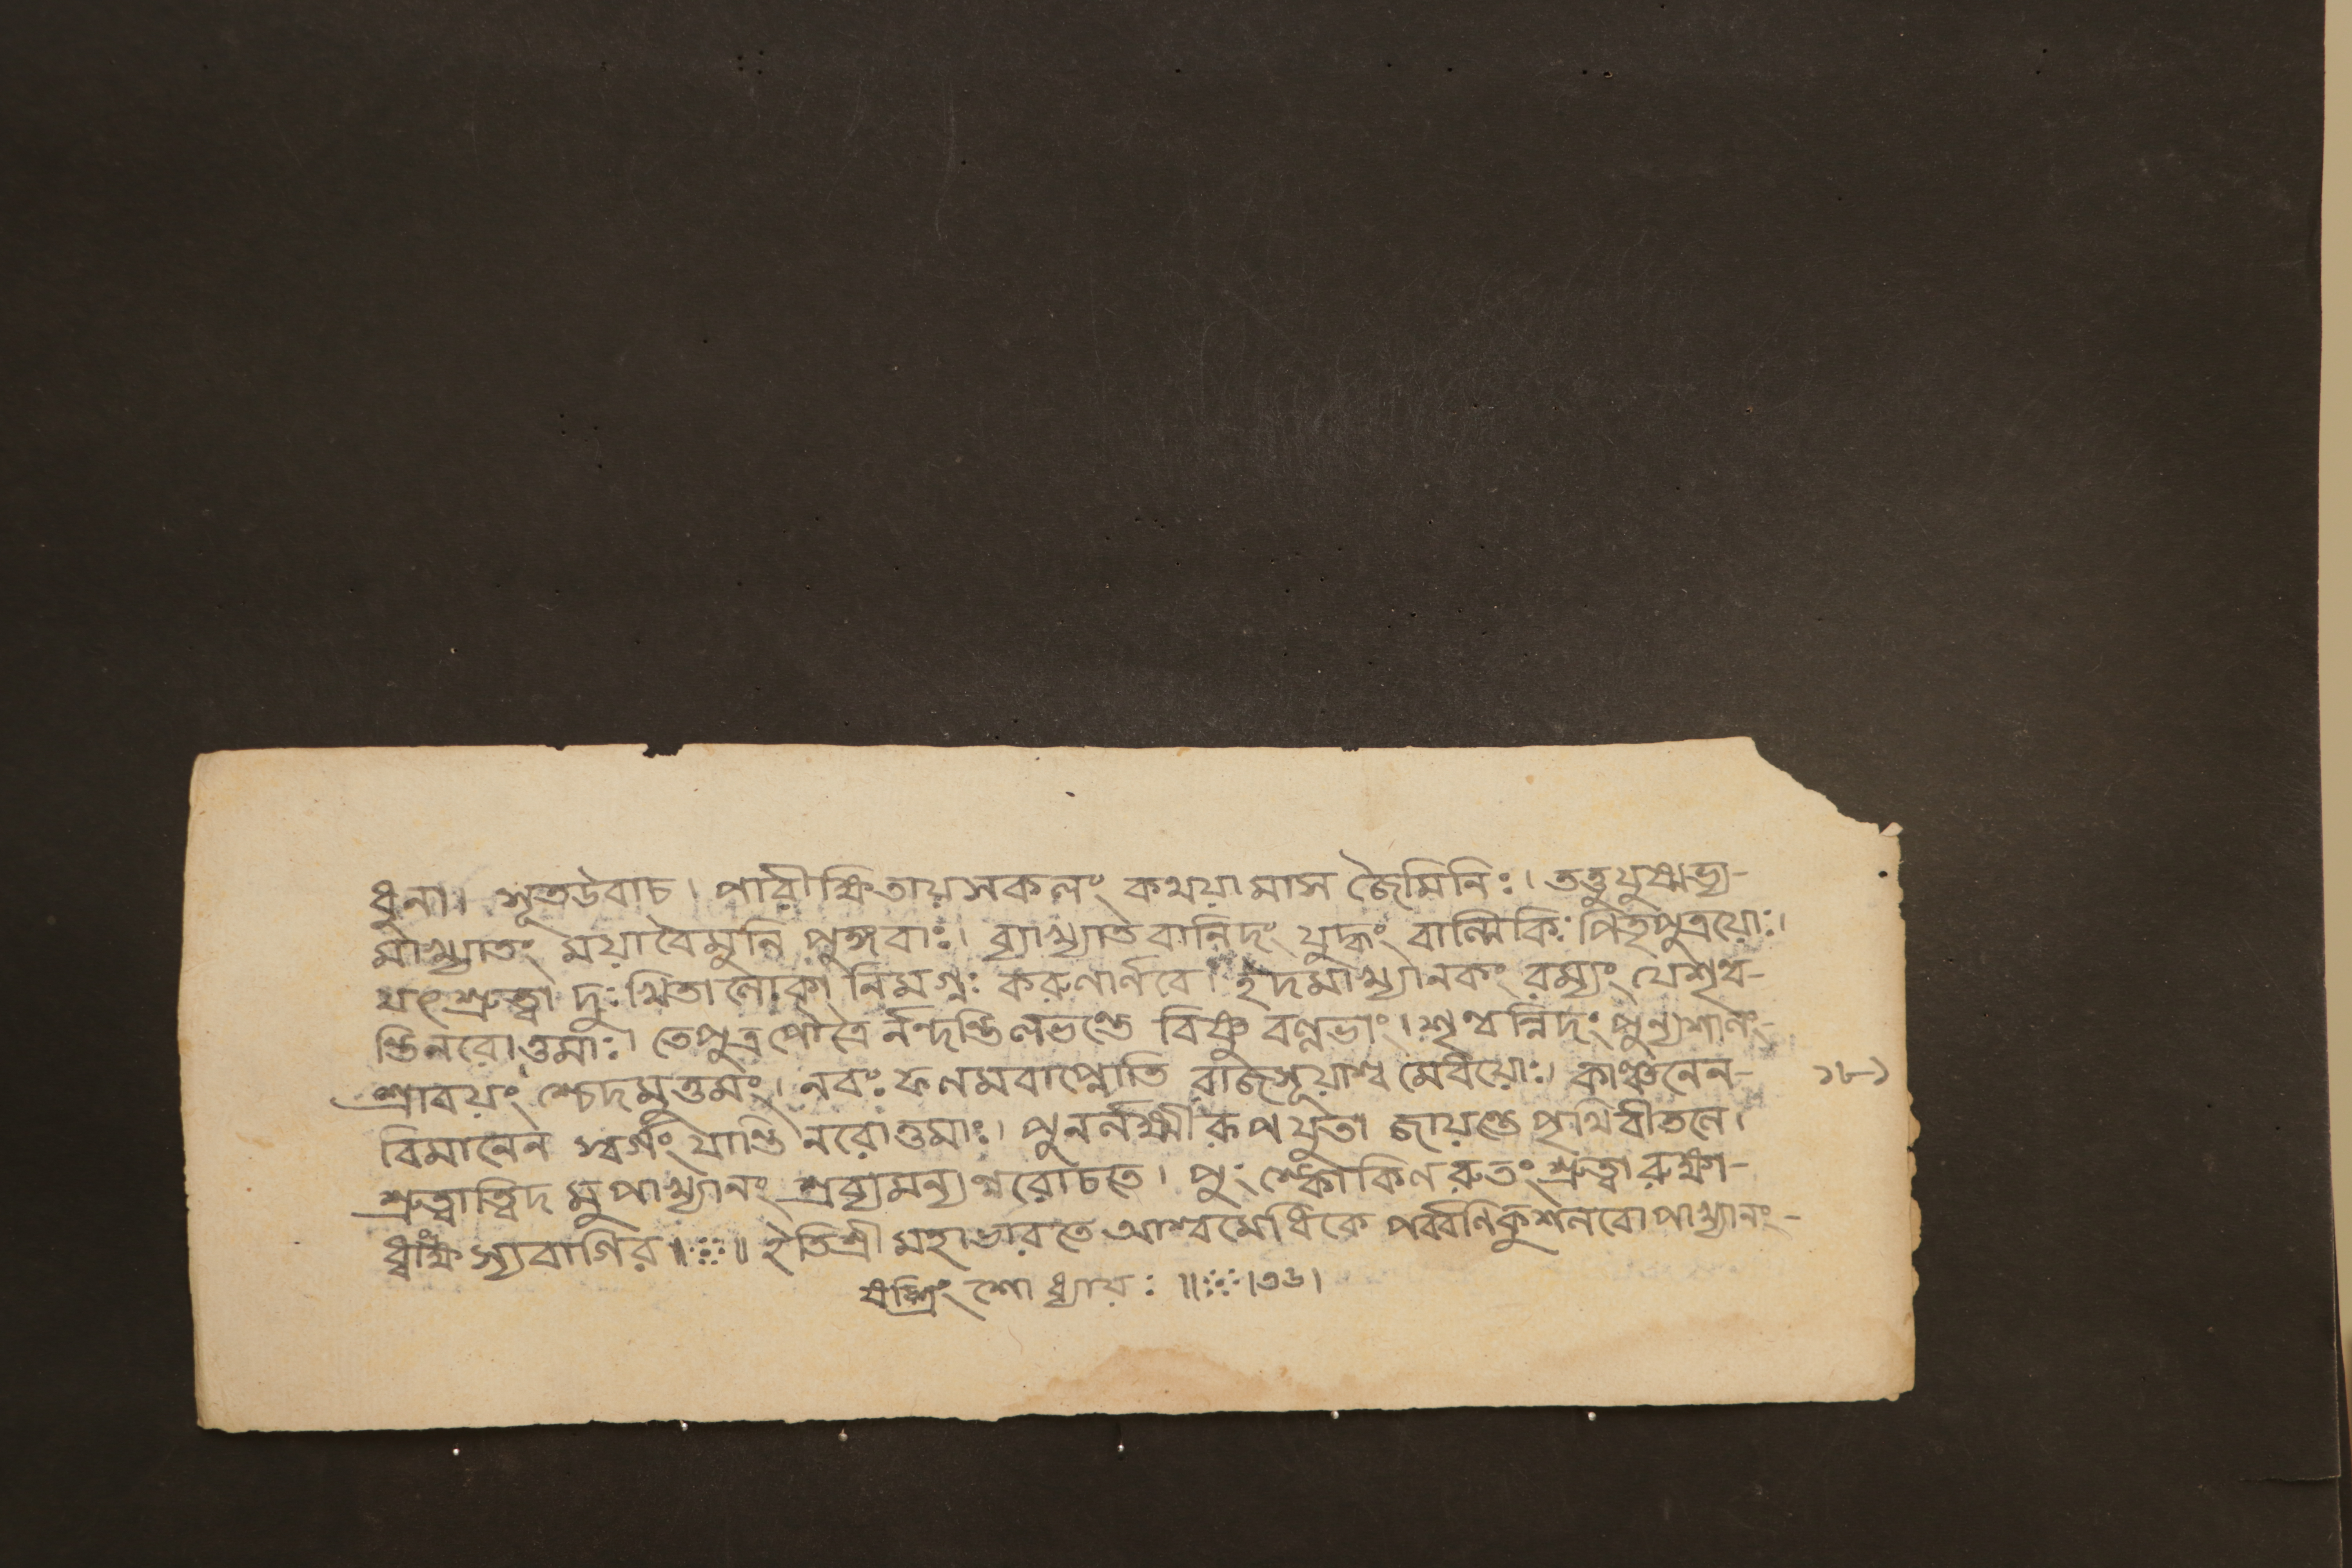 ধুনা। সূতউবাচ। পারীক্ষিতায়সকলং কথয়ামাস জৈমিনিঃ। তত্তুযুষ্মভ্য-
মাখ্যাতং ময়াবৈমুনি পুঙ্গবাঃ। ব্যাখ্যাতবানিদং যুদ্ধং বাল্মীকিঃ পিতৃপুত্রয়োঃ।
যৎশ্রুত্বা দুঃখিতালোকা নিমগ্নঃ করুণার্ণবে। ইদমাখ্যানকং রম্যং যেশৃণ্ব-
ন্তিনরোত্তমাঃ। তেপুত্রপৌত্রৈর্নন্দন্তিলভন্তে বিষ্ণু বল্লভাং। শৃণ্বন্নিদং পুন্যশীলঃ-
শ্রাবয়ং শ্চেদমুত্তমং। নবঃ ফলমবাপ্নোতি রাজসূয়াশ্ব মেধয়োঃ। কাঞ্চনেন-
১৮১
বিমানেন স্বর্গং যান্তি নরোত্তমাঃ। পুনর্লক্ষ্মীরূপযুতা জায়ন্তে পৃথিবীতলে।
শ্রুত্বাত্বিদ মুপাখ্যানং শ্রব্যমন্যন্নরোচতে। পুং স্কোকিলরুতং শ্রুত্বা রুক্ষা-
ধ্বাংক্ষস্যবাগির॥ঃঃ॥ ইতিশ্রী মহাভারতে আশ্বমেধিকে পর্ব্বণিকুশলবোপাখ্যানং-
ষট্ত্রিং শো ধ্যায়ঃ ॥ঃঃ।৩৬।